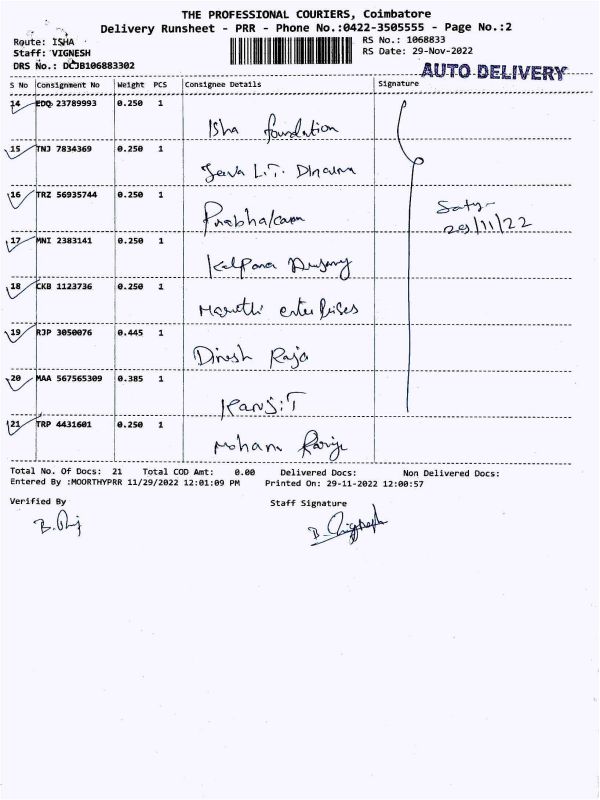 THE PROFESSIONAL COURIERS, Coimbatore
Delivery Runsheet - PRR - Phone No.:0422-3505555 - Page No.:2
Route: ISHA
Staff: VIGNESH
DRS No.: DCJB106883302
RS No.: 1068833
RS Date: 29-Nov-2022
AUTO DELIVERY
S No Consignment No Weight PCS Consignee Details Signature
14 EDQ 23789993 0.250 1
Isha foundation
15 TNJ 7834369 0.250 1
Jeeva L.T.
16 TRZ 56935744 0.250 1
Prabhakaran
29/11/22
17 MNI 2383141 0.250 1
Kalpana
18 CKB 1123736 0.250 1
Maruthi enterprises
19 RJP 3050076 0.445 1
Dinesh Raja
20 MAA 567565309 0.385 1
Ranjit
21 TRP 4431601 0.250 1
Mohana
Total No. Of Docs: 21 Total COD Amt: 0.00 Delivered Docs: Non Delivered Docs:
Entered By :MOORTHYPRR 11/29/2022 12:01:09 PM Printed On: 29-11-2022 12:00:57
Verified By Staff Signature